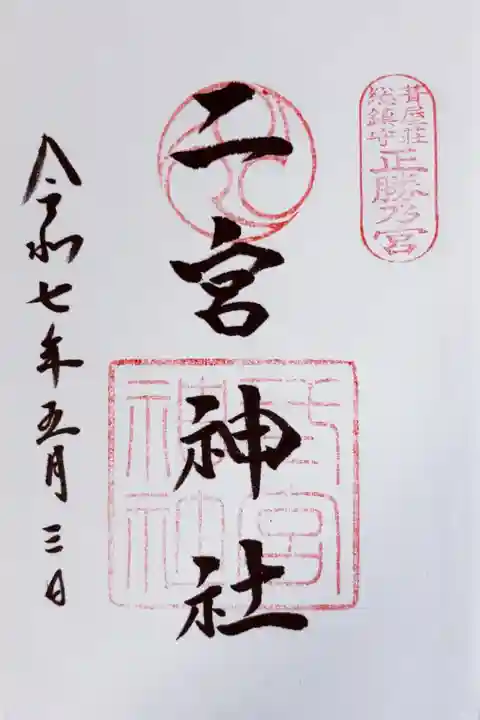 葺屋荘
総鎮守
正勝乃宮
二宮神社
宮
神社
令和七年五月三日